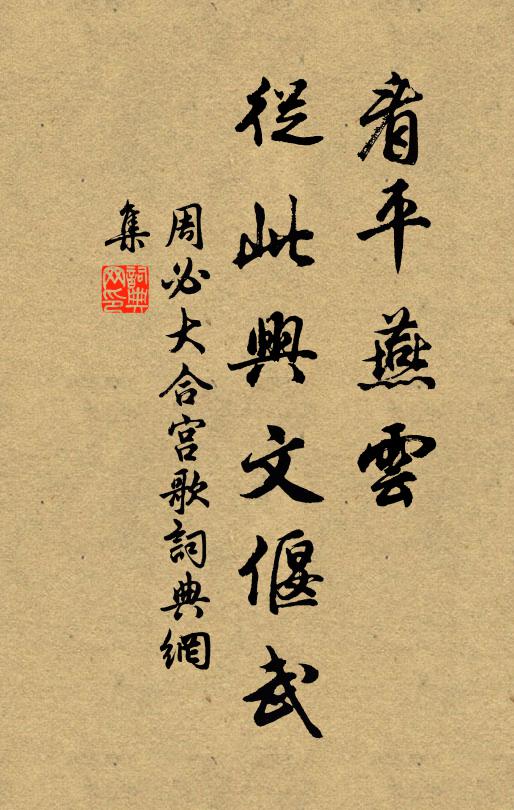 看平燕雲
從此興文偃武
周必大合宮歌詞典網
集
詞典
网印